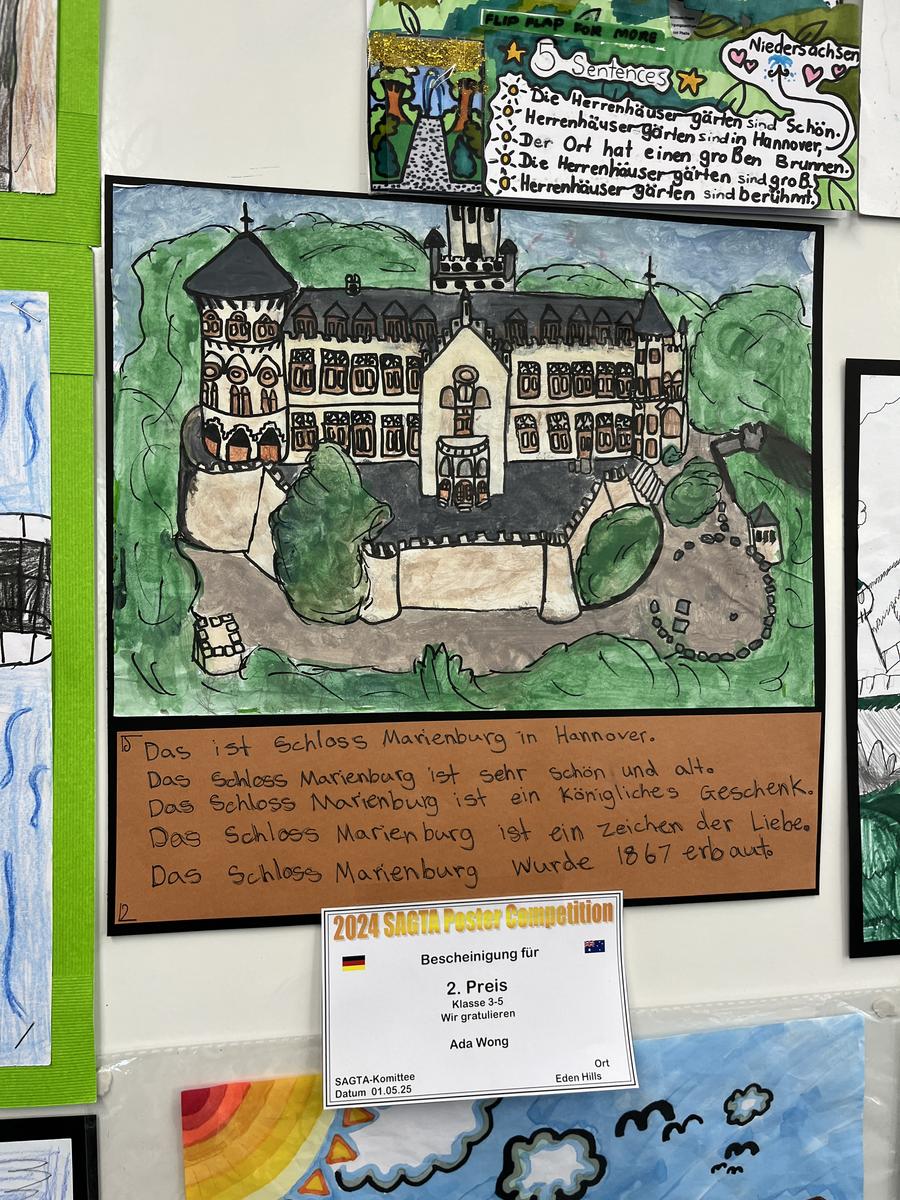 FLIP FLAP FOR MORE
5 Sentences
Niedersachsen
Die Herrenhäuser gärten sind Schön.
Herrenhäuser gärten sind in Hannover,
Der Ort hat einen großen Brunnen.
Die Herrenhäuser gärten sind groß.
Herrenhäuser gärten sind berühmt.
Das ist Schloss Marienburg in Hannover.
Das Schloss Marienburg ist sehr schön und alt.
Das Schloss Marienburg ist ein Königliches Geschenk.
Das Schloss Marienburg ist ein Zeichen der Liebe.
Das Schloss Marienburg wurde 1867 erbaut.
2024 SAGTA Poster Competition
Bescheinigung für
2. Preis
Klasse 3-5
Wir gratulieren
Ada Wong
Ort
SAGTA-Komittee Eden Hills
Datum 01.05.25